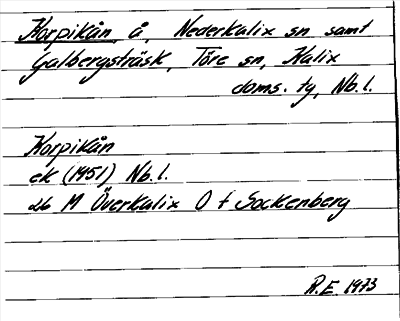 Korpikån å, Nederkalix sn samt
Galbergsträsk, Töre sn, Kalix
doms. tg, Nb.l.
Korpikån
ek (1951) Nb.l.
26 M Överkalix O f Sockenberg
R.E. 1973